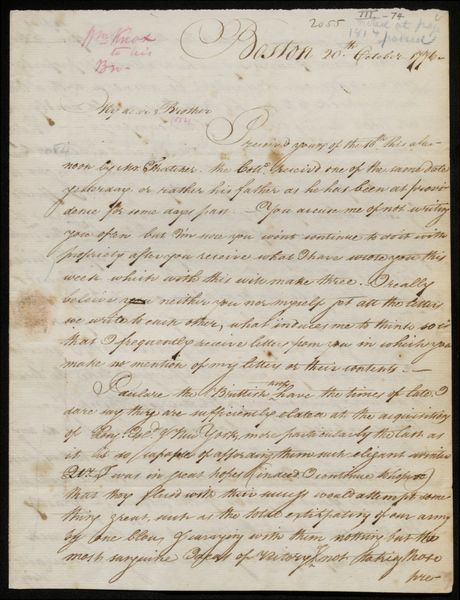 2055
III - 74
Wm Knox
to his
Bro.
Boston 20th October 1776
My dear Brother
I received yours of the 16th this after
noon by Mr Thatcher. the Coll. receivd one of the same date
yesterday or rather his father as he has been at provi
dence for some days past - You accuse me of not writing
you often but I'm sure you wont continue to do it with
propriety after you receive what I have wrote you this
week which with this will make three. I really
beleive neither you nor myself get all the letters
we write to each other, what induces me to think so is
that I frequently receive letters from you in which you
make no mention of my letters or their contents -
I declare the Brittish arms have the times of late. I
dare say they are sufficiently elated at the acquisition
of New York, more particularly the last as
it is so capable of affording them such elegant winter
I was in great hopes (indeed I continue to hope so)
that they flush'd with their success would attempt some
thing great, such as the total extirpating of our army
by one blow, & carrying with them nothing but the
most sanguine Ideas of Victory & not that they those
pre